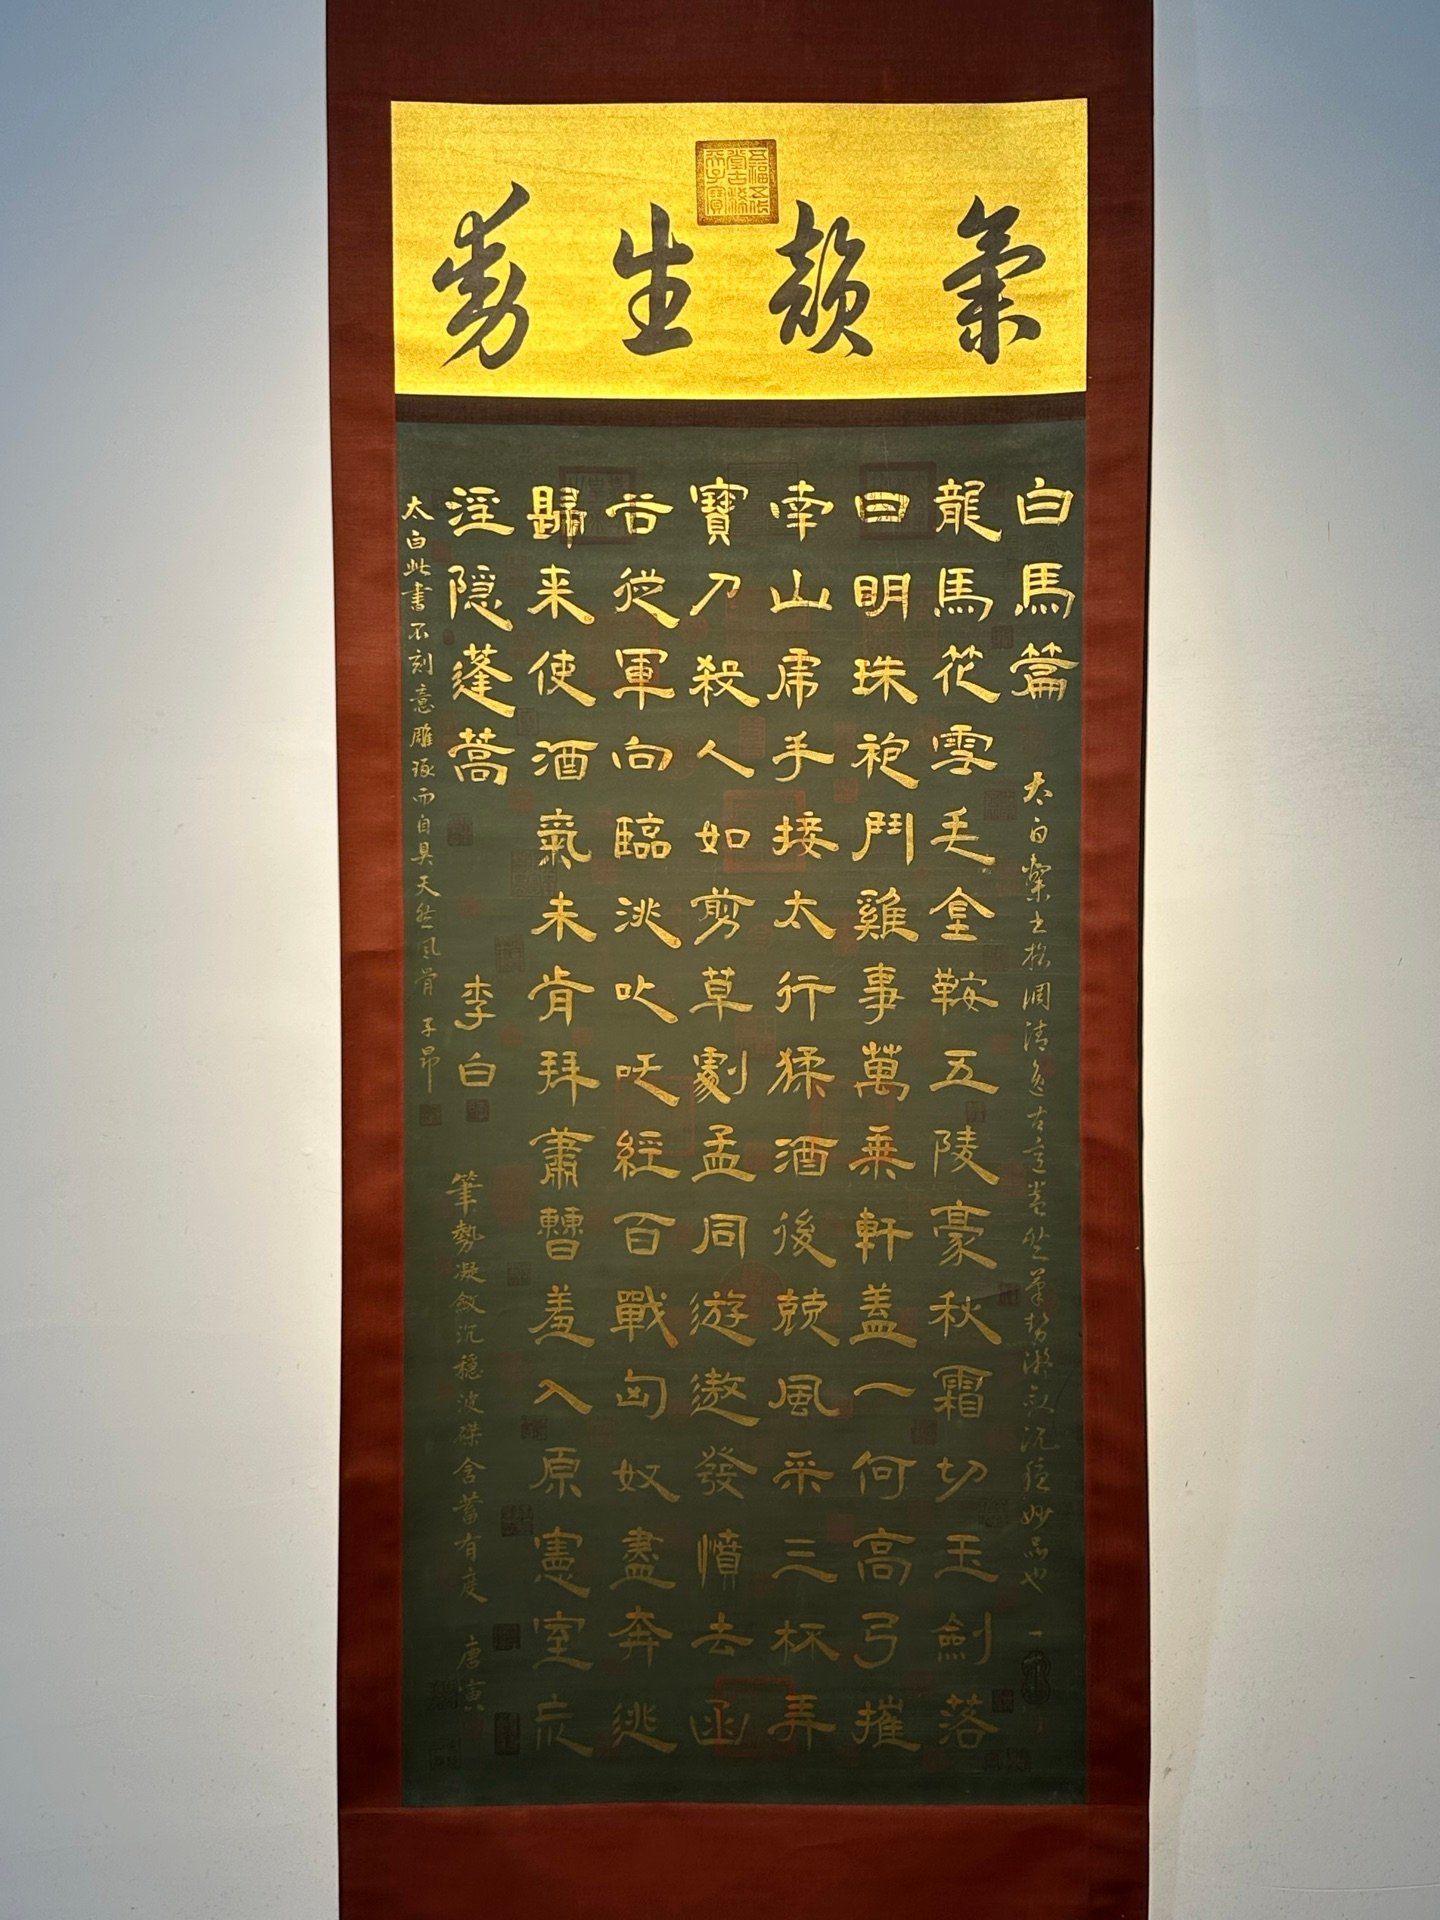 五福五代堂古稀天子寶
氣韻生動
白馬篇
太白隸書格調清逸古意盎然筆勢凝斂沉穩妙品也
龍馬花雪毛金鞍五陵豪秋霜切玉劍落
日明珠袍鬥雞事萬乘軒蓋一何高弓摧
南山虎手接太行猱酒後競風采三杯弄
寶刀殺人如剪草劇孟同遊遨發憤去函
谷從軍向臨洮叱咤經百戰匈奴盡奔逃
歸来使酒氣未肯拜蕭曹羞入原憲室荒
淫隐蓬蒿
李白
筆勢凝斂沉穩波磔含蓄有度 唐寅
太白此書不刻意雕琢而自具天然風骨 子昂